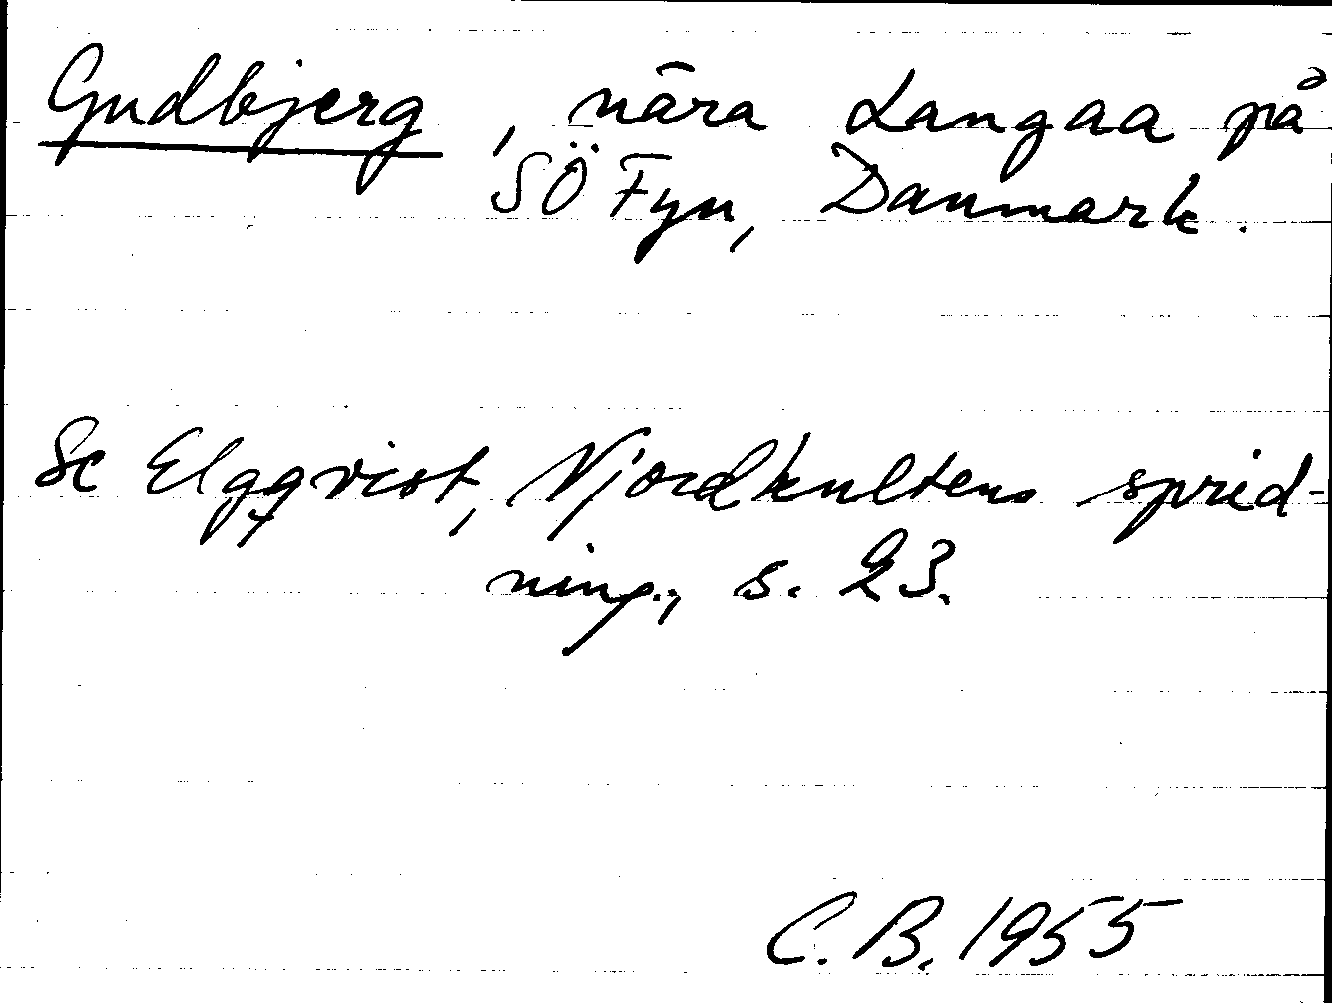 Gudbjerg, nära Langaa på
SÖ Fyn, Danmark.
Se Elgqvist, Njordkultens sprid-
ning., s. 23.
C.B. 1955